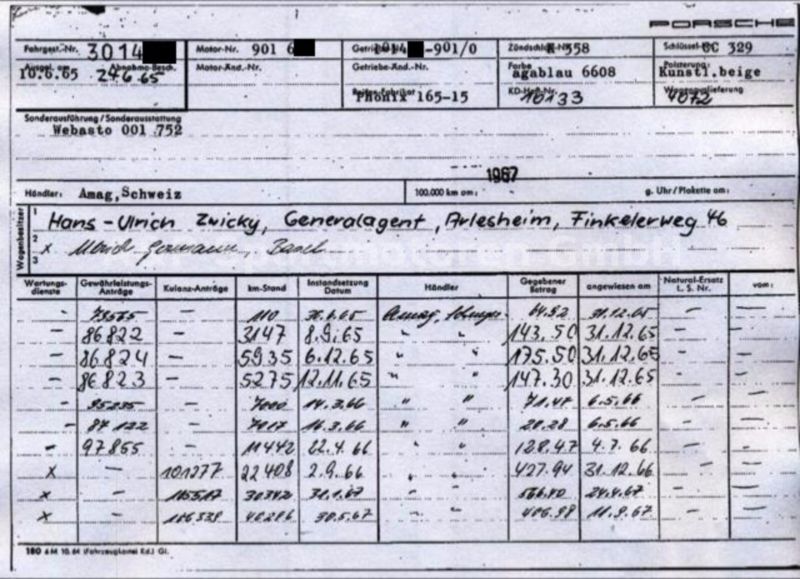 PORSCHE
Fahrgest.-Nr. 3014 Motor-Nr. 901 6 Getriebe-Nr. -901/0 Zündschloß-Nr. K 558 Schlüssel-Nr. CC 329
Ausgel. am 10.6.65 Abnahme-Besch. 24.6.65 Motor-Änd.-Nr. Getriebe-Änd.-Nr. Farbe agablau 6608 Polsterung: Kunstl.beige
Reifen-Fabrikat Phönix 165-15 KD-Heft-Nr. 10133 Wagenauslieferung 4072
Sonderausführung / Sonderausstattung
Webasto 001 752
1967
Händler: Amag,Schweiz 100.000 km am: g. Uhr/Plakette am:
Wagenbesitzer
1 Hans-Ulrich Zwicky, Generalagent, Arlesheim, Finkelerweg 46
2 x Basel
3
Wartungs-dienste Gewährleistungs-Anträge Kulanz-Anträge km-Stand Instandsetzung Datum Händler Gegebener Betrag angewiesen am Natural-Ersatz L. S. Nr. vom:
- - 110 Amag, 64.92 31.12.65 - -
- 86822 - 3147 8.9.65 " " 143.50 31.12.65 - -
- 86824 - 5935 6.12.65 " " 175.50 31.12.65 - -
- 86823 - 5275 12.11.65 " " 147.30 31.12.65 - -
- 95235 - 7000 14.3.66 " " 71.47 6.5.66 - -
- 87122 - 7017 16.3.66 " " 20.28 6.5.66 - -
- 97855 - 11442 22.4.66 " " 128.47 4.7.66 - -
x - 101277 22408 2.9.66 " " 427.94 31.12.66 - -
x - 30342 31.1.67 " " 24.4.67 - -
x - 106539 40286 30.5.67 " " 406.98 11.9.67 - -
180 6 M 10.64 (Fahrzeugkartei Kd.) Gl.